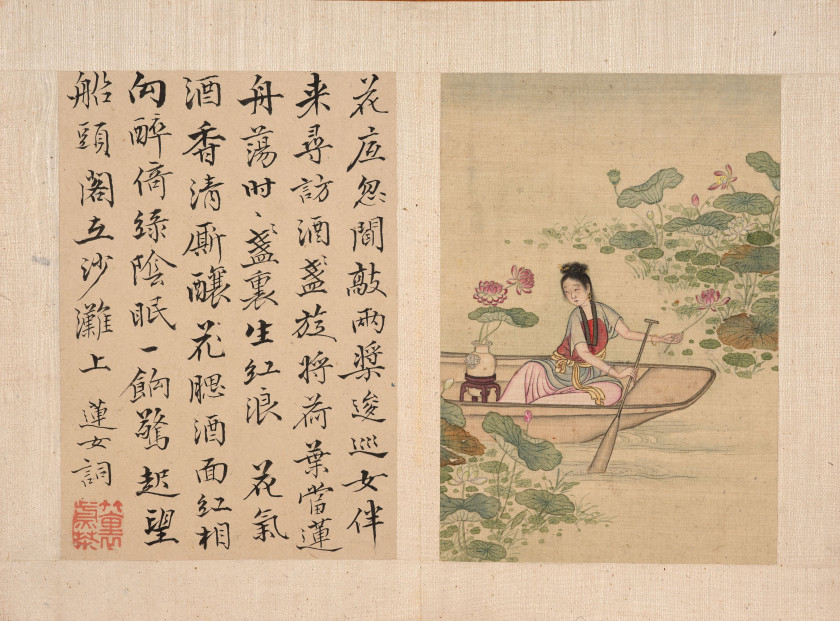 花底忽聞敲兩槳逡巡女伴
来尋訪酒盞旋將荷葉當蓮
舟蕩時〻盞裏生紅浪 花氣
酒香清廝釀花腮酒面紅相
向醉倚綠陰眠一餉驚起望
船頭閣在沙灘上 蓮女詞